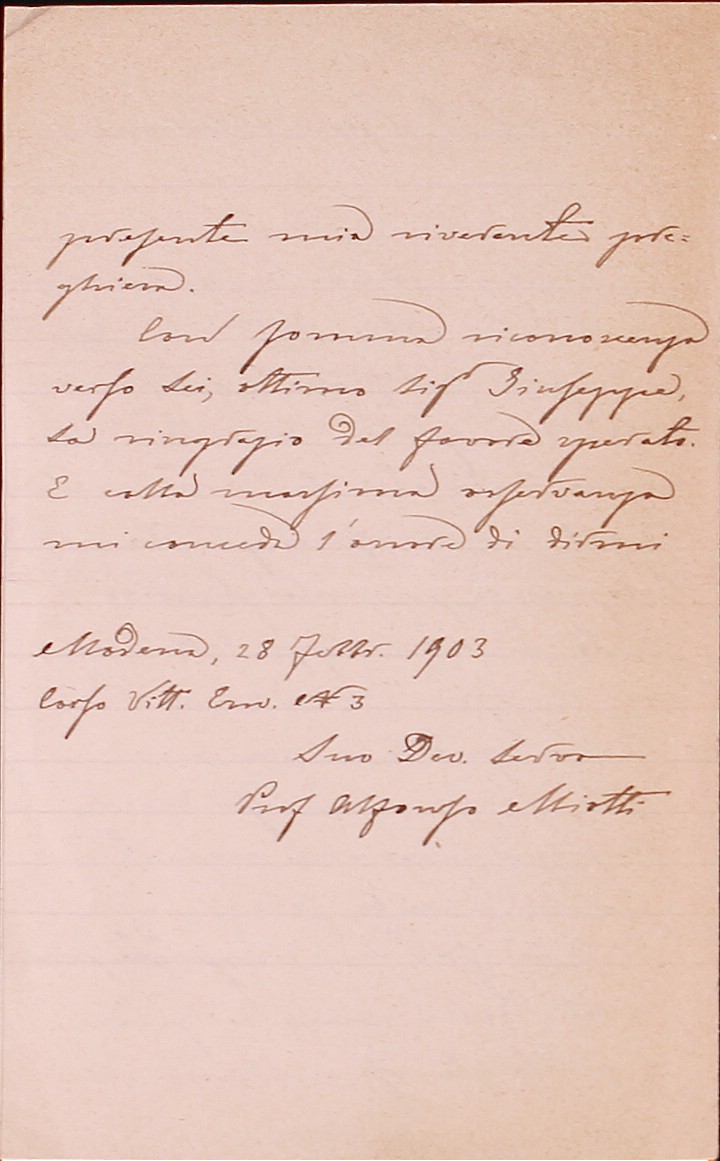 presente mia riverente pre=
ghiera.
Con somma riconoscenza
verso Lei, ottimo Sigr Giuseppe,
La ringrazio del favore sperato.
E colla massima osservanza
mi conceda l'onore di dirmi
Modena, 28 Febbr. 1903
Corso Vitt. Em. N 3
Suo Dev. Servo
Prof Alfonso Miotti